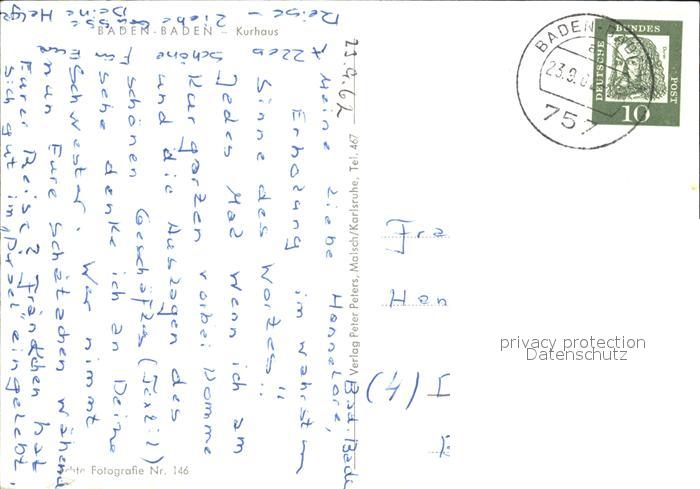 BADEN-BADEN – Kurhaus
23.9.62
Bad. Bade
Meine liebe Hannelore,
Erholung im wahrsten
Sinne des Wortes!!
Jedes Mal wenn ich am
Kurgarten vorbei komme
und die Auslagen des
schönen Geschäftes (Textil)
sehe denke ich an Deine
Schwester. Wer nimmt
nun Eure Schätzchen während
Eurer Reise? Fränzchen hat
sich gut im "Pursel" eingelebt.
Alles schöne für
Reise –
liebe Grüsse
Deine Helge
Verlag Peter Peters, Malsch/Karlsruhe, Tel. 467
Echte Fotografie Nr. 146
BADEN-BAD
23.9.6
757
DEUTSCHE BUNDESPOST
10
Fra
Han
(4)
privacy protection
Datenschutz